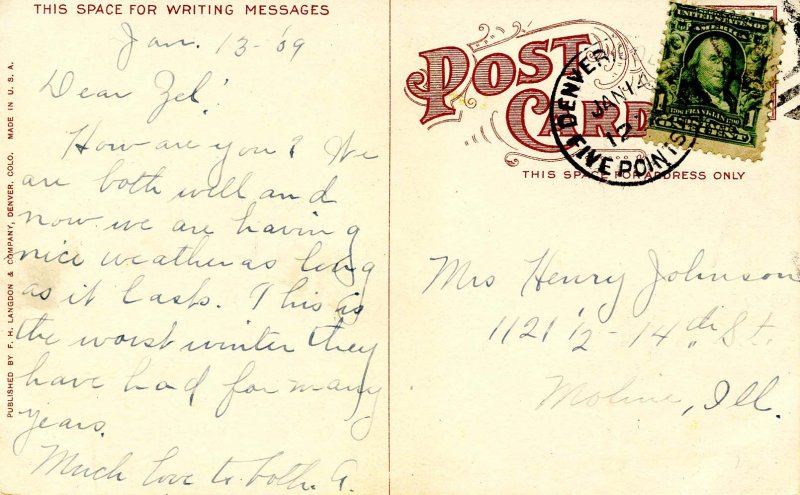 THIS SPACE FOR WRITING MESSAGES
Jan. 13-'09
Dear Zel!
How are you? We
are both well and
now we are having
nice weather as long
as it lasts. This is
the worst winter they
have had for many
years.
Much love to both. A.
PUBLISHED BY F. H. LANGDON & COMPANY, DENVER, COLO. MADE IN U. S. A.
POST
CARD
DENVER, COLO.
JAN 14
12
FIVE POINTS
UNITED STATES OF AMERICA
1 1
FRANKLIN
THIS SPACE FOR ADDRESS ONLY
Mrs Henry Johnson
1121 1/2 - 14th St.
Moline, Ill.